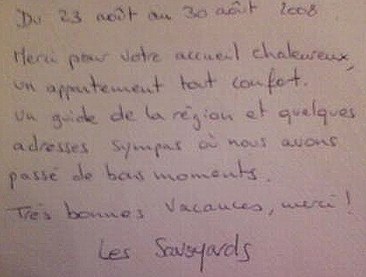 Du 23 août au 30 août 2008
Merci pour votre accueil chaleureux,
un appartement tout confort.
Un guide de la région et quelques
adresses sympas où nous avons
passé de bons moments.
Très bonnes vacances, merci !
Les Savoyards